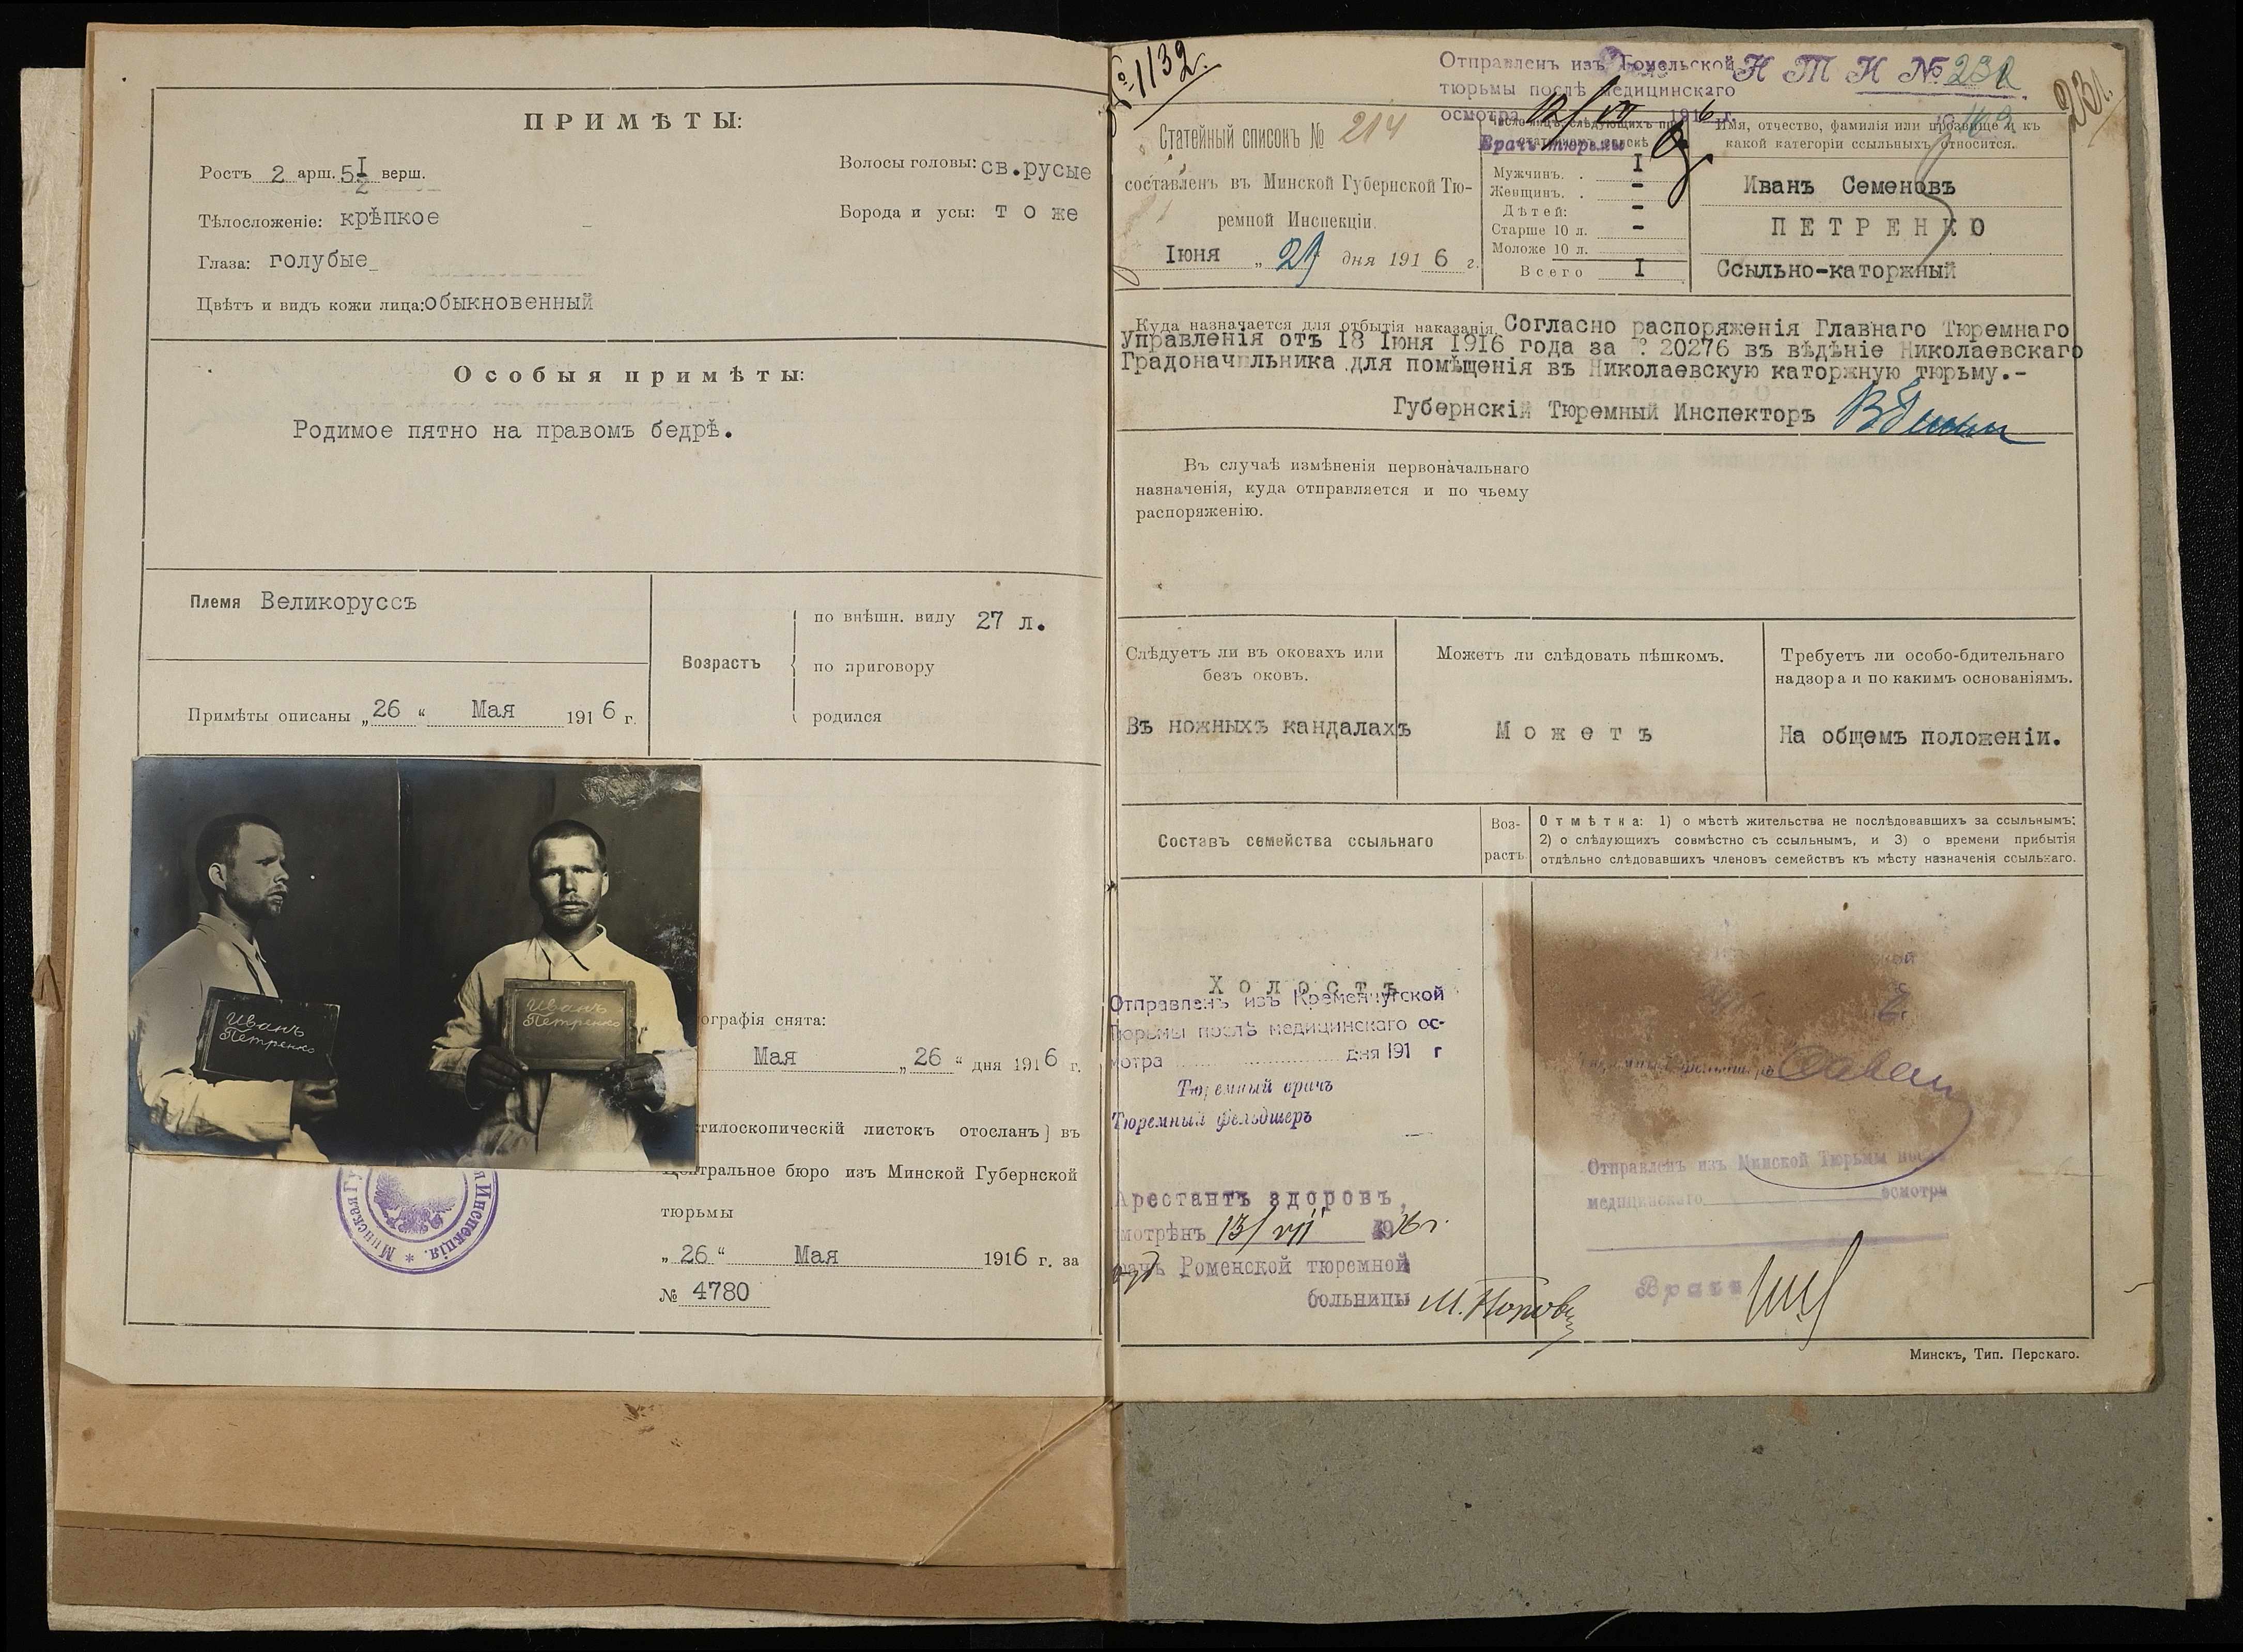 ПРИМѢТЫ:
Ростъ 2 арш. 5 I/2 верш.
Волосы головы: св.русые
Тѣлосложеніе: крѣпкое
Борода и усы: т о же
Глаза: голубые
Цвѣтъ и видъ кожи лица: обыкновенный
Особыя примѣты:
Родимое пятно на правомъ бедрѣ.
Племя Великоруссъ
Возрастъ
по внѣшн. виду 27 л.
по приговору
родился
Примѣты описаны „26“ Мая 1916 г.
Иванъ
Петренко
Иванъ
Петренко
ографія снята:
Мая „26“ дня 1916 г.
тилоскопическій листокъ отосланъ въ
Центральное бюро изъ Минской Губернской
тюрьмы
„26“ Мая 1916 г. за
№ 4780
Инспекція. * Минская Гу
№ 1132.
Отправленъ изъ Гомельской
тюрьмы послѣ медицинскаго
осмотра 12/VII 1916 г.
Врачъ тюрьмы
Н Т К № 232
231.
Статейный списокъ № 214
составленъ въ Минской Губернской Тю-
ремной Инспекціи.
Іюня „ 29 дня 1916 г.
Число лицъ, слѣдующихъ при
статейномъ спискѣ
Мужчинъ. . I
Женщинъ. . -
Дѣтей: -
Старше 10 л. -
Моложе 10 л.
Всего I
Имя, отчество, фамилія или прозвище и къ
какой категоріи ссыльныхъ относится.
Иванъ Семеновъ
ПЕТРЕНКО
Ссыльно-каторжный
Куда назначается для отбытія наказанія. Согласно распоряженія Главнаго Тюремнаго
Управленія отъ 18 Іюня 1916 года за № 20276 въ вѣдѣніе Николаевскаго
Градоначальника для помѣщенія въ Николаевскую каторжную тюрьму.-
Губернскій Тюремный Инспекторъ
Въ случаѣ измѣненія первоначальнаго
назначенія, куда отправляется и по чьему
распоряженію.
Слѣдуетъ ли въ оковахъ или
безъ оковъ.
Въ ножныхъ кандалахъ
Можетъ ли слѣдовать пѣшкомъ.
Можетъ
Требуетъ ли особо-бдительнаго
надзора и по какимъ основаніямъ.
На общемъ положеніи.
Составъ семейства ссыльнаго
Воз-
растъ
Отмѣтка: 1) о мѣстѣ жительства не послѣдовавшихъ за ссыльнымъ;
2) о слѣдующихъ совмѣстно съ ссыльнымъ, и 3) о времени прибытія
отдѣльно слѣдовавшихъ членовъ семействъ къ мѣсту назначенія ссыльнаго.
Холостъ
Отправленъ изъ Кременчугской
Тюрьмы послѣ медицинскаго ос-
мотра дня 191 г
Тюремный врачъ
Тюремный фельдшеръ
Арестантъ здоровъ,
мотрѣнъ 13/VII 1916 г.
рачъ Роменской тюремной
больницы М. Попов
Отправленъ изъ Минской Тюрьмы послѣ
медицинскаго осмотра
Врачъ
Минскъ, Тип. Перскаго.